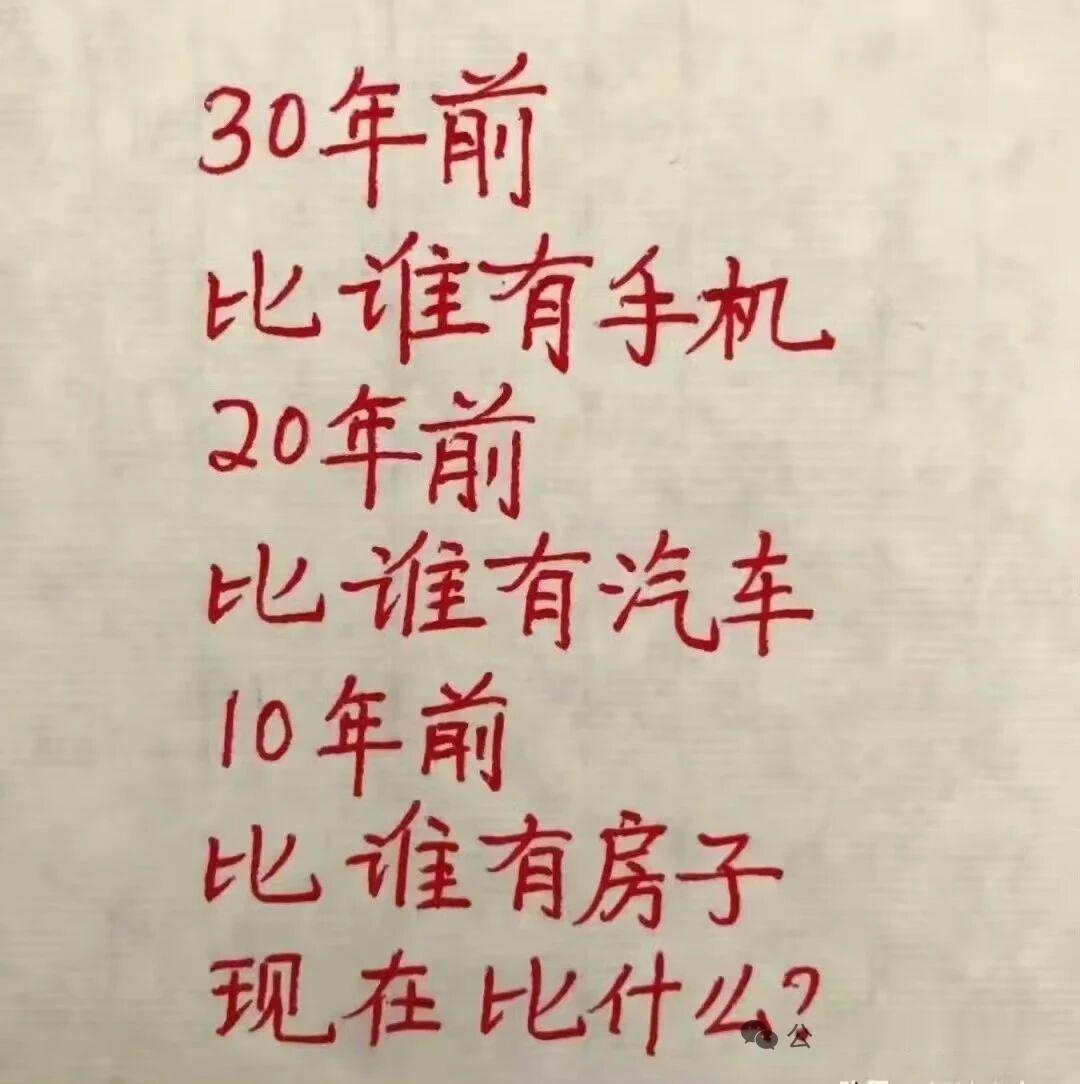 30年前
比谁有手机
20年前
比谁有汽车
10年前
比谁有房子
现在比什么?
公